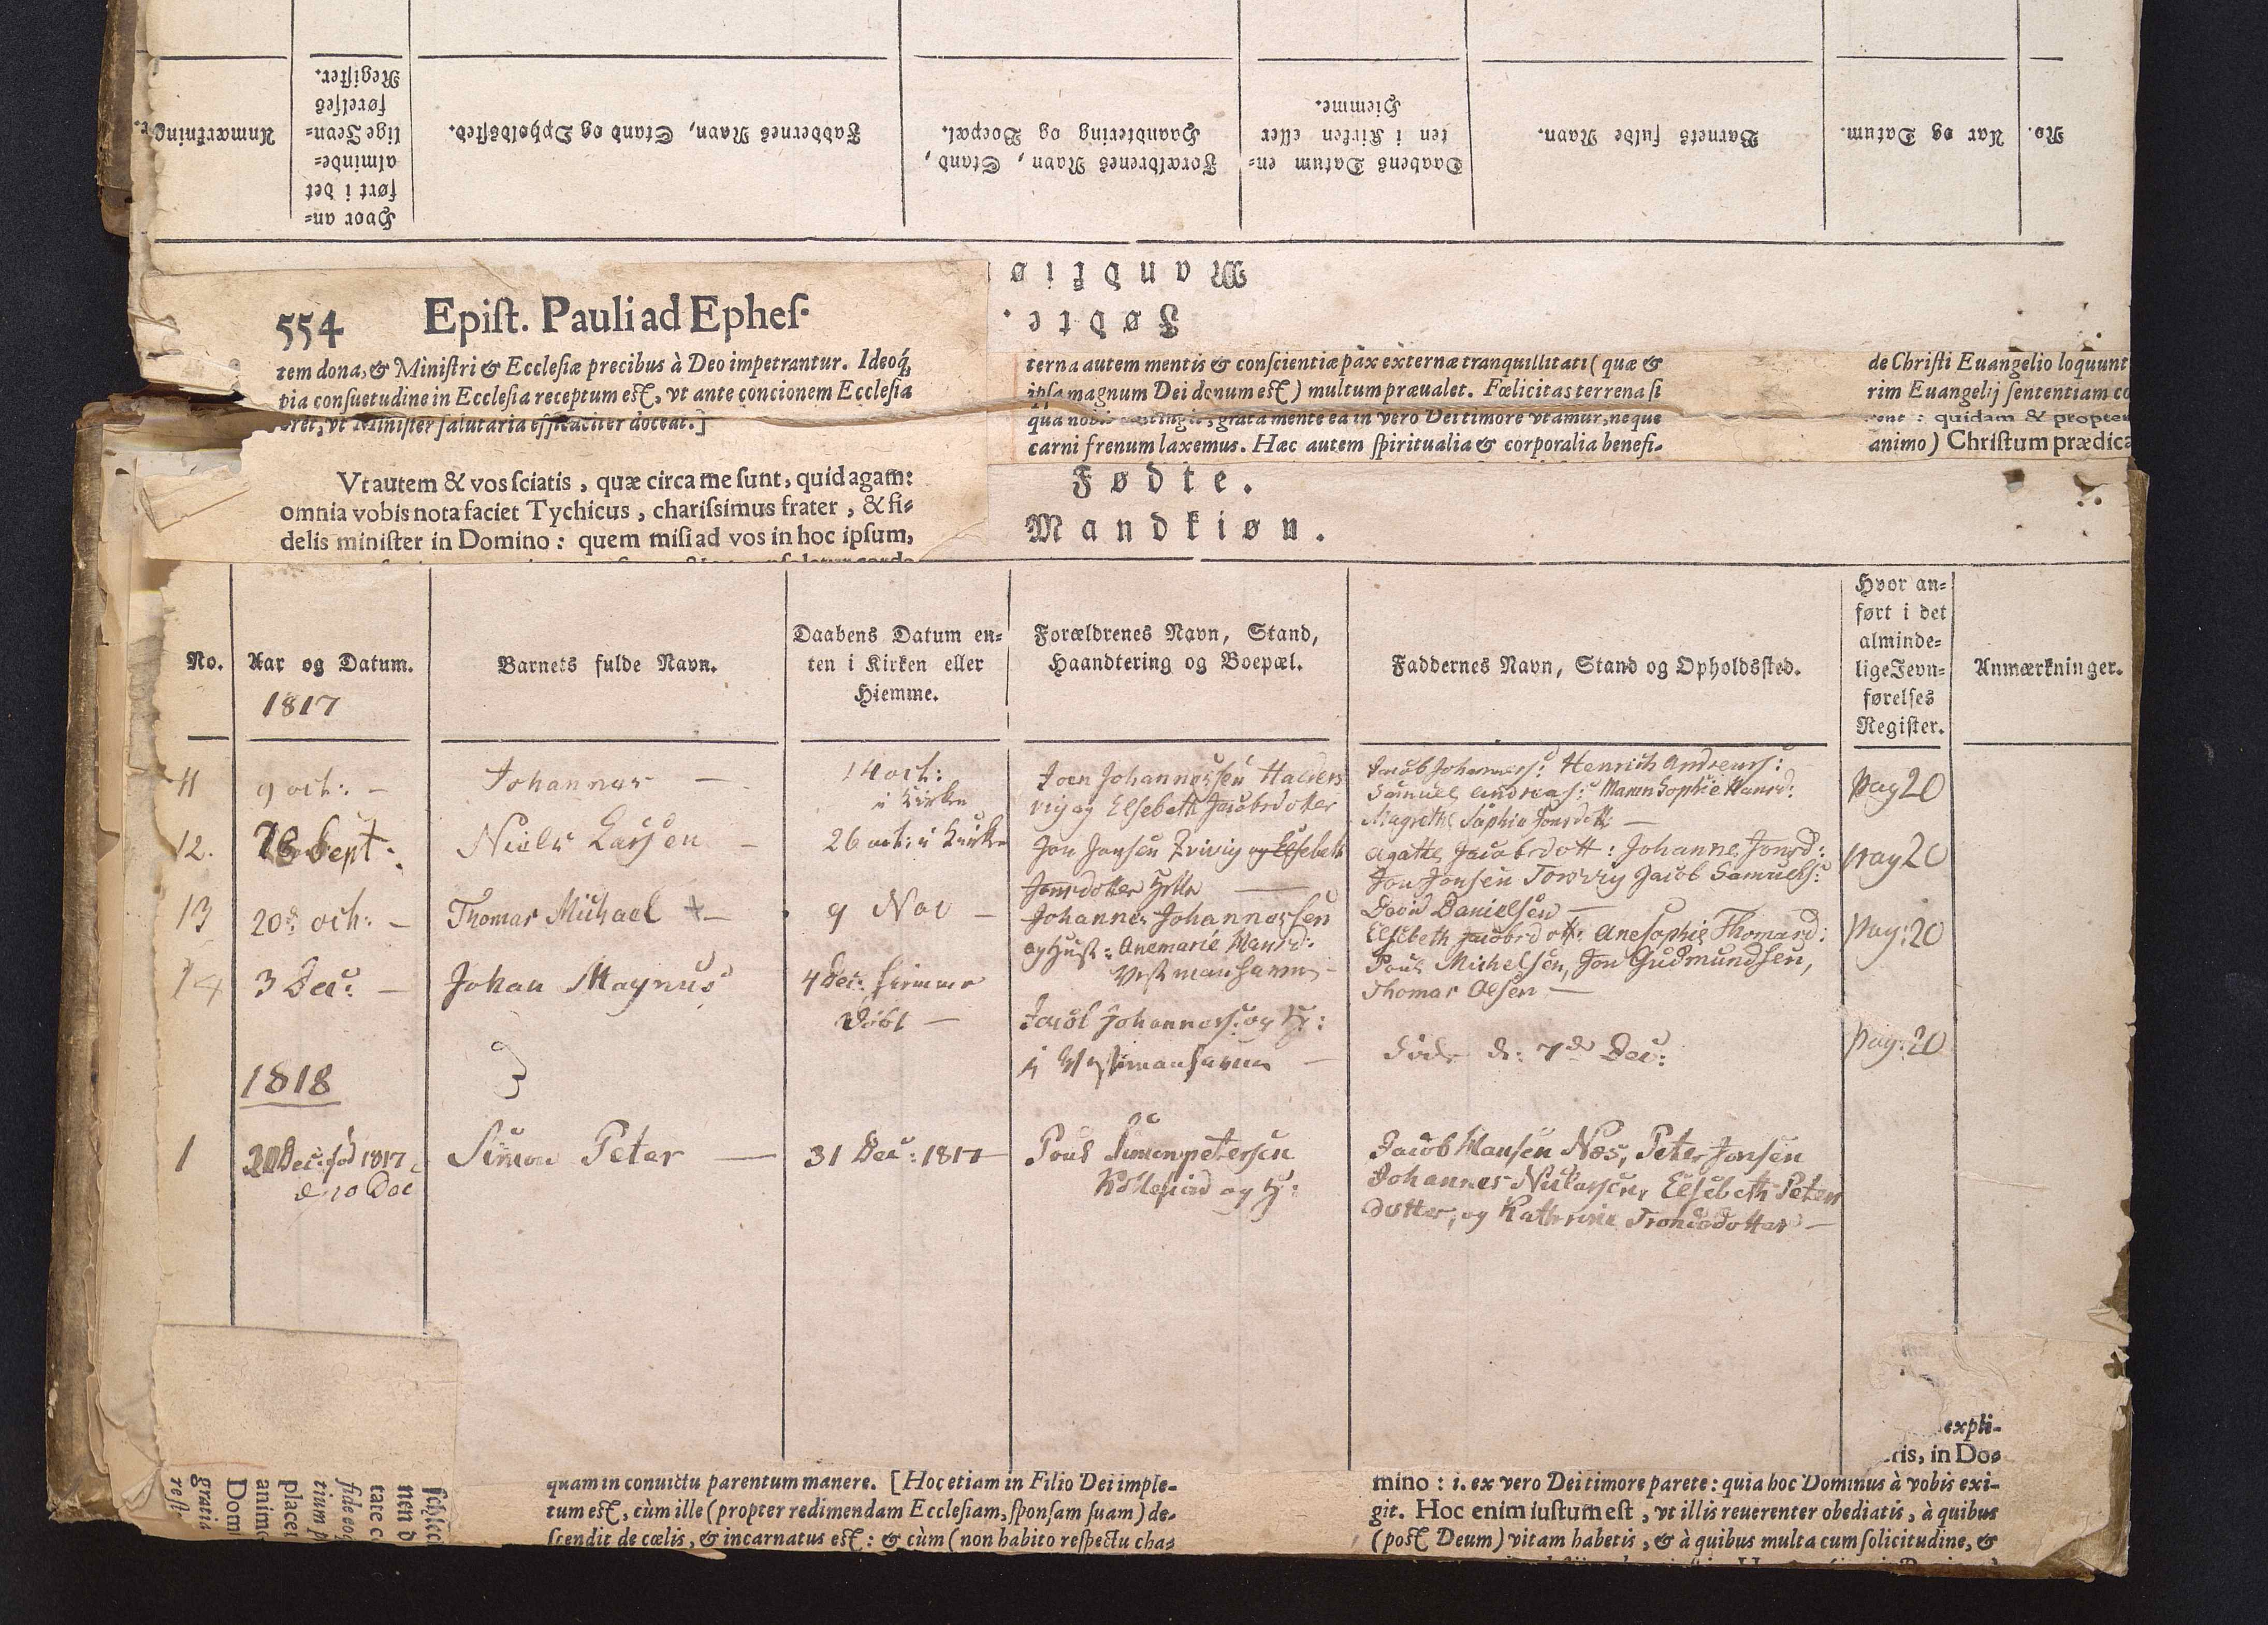 No.
Aar og Datum.
Barnets fulde Navn.
Daabens Datum en=
ten i Kirken eller
Hiemme.
Forældrenes Navn, Stand,
Haandtering og Boepæl.
Faddernes Navn, Stand og Opholdssted.
Hvor an=
ført i det
alminde=
lige Jevn=
førelses
Register.
Anmærkninger.
Mandkiø
Fødte.
554 Epiſt. Pauli ad Epheſ.
tem dona, & Miniſtri & Eccleſiæ precibus à Deo impetrantur. Ideoq́,
pia conſuetudine in Eccleſia receptum eſt, vt ante concionem Eccleſia
oret, vt Miniſter ſalutaria efficaciter doceat.]
Vt autem & vos ſciatis, quæ circa me ſunt, quid agam:
omnia vobis nota faciet Tychicus, chariſsimus frater, & fi-
delis miniſter in Domino: quem miſi ad vos in hoc ipſum,
terna autem mentis & conſcientiæ pax externæ tranquillitati (quæ &
ipſa magnum Dei donum eſt) multum præualet. Fœlicitas terrena ſi
qua nobis contingit, grata mente ea in vero Dei timore vtamur, neque
carni frenum laxemus. Hæc autem ſpiritualia & corporalia benefi-
de Chriſti Euangelio loquunt
rim Euangelij ſententiam co
quidam & propter
animo) Chriſtum prædica
Fødte.
Mandkiøn.
No.
Aar og Datum.
1817
Barnets fulde Navn.
Daabens Datum en=
ten i Kirken eller
Hiemme.
Forældrenes Navn, Stand,
Haandtering og Boepæl.
Faddernes Navn, Stand og Opholdssted.
Hvor an=
ført i det
alminde=
lige Jevn=
førelses
Register.
Anmærkninger.
11
9 oct: -
Johannes -
14 oct:
i Kirke
Joen Johannessen Halders
vig og Elsebeth Jacobsdotter
Jacob Johanness: Henrich Andreass:
Samuel Andreas: Maren Sophie Hansd:
Magrethe Sophia Jonsdott: -
Pag 20
12.
26 Sept:
Niels Larsen -
26 oct: i Kirke
Jon Jonsen Tvivig og Elsebeth
Jonsdotter
Agathe Jacobsdott: Johanne Jonsd:
Jon Jonsen Jacob Samuels:
David Danielsen -
Pag 20
13
20de oct: -
Thomas Michael + -
9 Nov -
Johannes Johannessen
og Hust: Anemarie Hansd:
Vestmanhavn -
Elsebeth Jacobsdott: Anesophie Thomasd:
Poul Michelsen, Jon Gudmundsen,
Thomas Olsen -
Pag: 20
14
3 Dec: -
Johan Magnus
4 Dec: hiemme
døbt -
Jacob Johanness: og H:
i Vestmanhavn -
døde d: 7de Dec:
Pag: 20
1818
1
Dec: 1817
d 20 Dec
Simon Peter -
31 Dec: 1817
Poul Simonpetersen
Kollefiord og H:
Jacob Hansen Næs, Peter Jonsen
Johannes Elsebeth Peters
dotter, og Kathrine Trondsdotter -
ſchlech
nen d
tate c
fide eoq
tium p
placer
animo
Dom
gratia
reſt-
quam in conuictu parentum manere. [Hoc etiam in Filio Dei imple-
tum eſt, cùm ille (propter redimendam Eccleſiam, ſponſam ſuam) de-
ſcendit de cœlis, & incarnatus eſt: & cùm (non habito reſpectu cha-
expli-
ris, in Do-
mino: i. ex vero Dei timore parete: quia hoc Dominus à vobis exi-
git. Hoc enim iuſtum eſt, vt illis reuerenter obediatis, à quibus
(poſt Deum) vitam habetis, & à quibus multa cum ſolicitudine, &